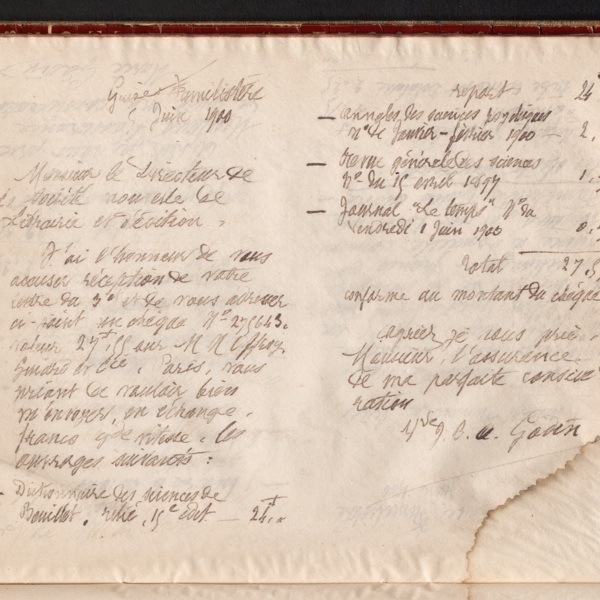 Guise Familistère
5 Juin 1900
Monsieur le Directeur de
la société nouvelle de
Librairie et d'édition,
J'ai l'honneur de vous
accuser réception de votre
lettre du 3 et de vous adresser
ci-joint un chèque No 275643.
valeur 27ft,55 sur M M Offroy
Guiard et Cie, Paris, vous
priant de vouloir bien
m'envoyer, en échange,
franco gde vitesse, les
ouvrages suivants :
- Dictionnaire des sciences de
Bouillet, relié, 15e édit — 24ft "
report 24
— Annales des sciences psychiques
No de Janvier-février 1900 — 2,
— Revue générale des sciences
No du 15 avril 1897 1,
— Journal "Le temps" No du
Vendredi 1 Juin 1900 0,
Total 27,5
conforme au montant du chèque
Agréer, je vous prie,
Monsieur, l'assurance
de ma parfaite considé
ration
Vve J. B. A. Godin